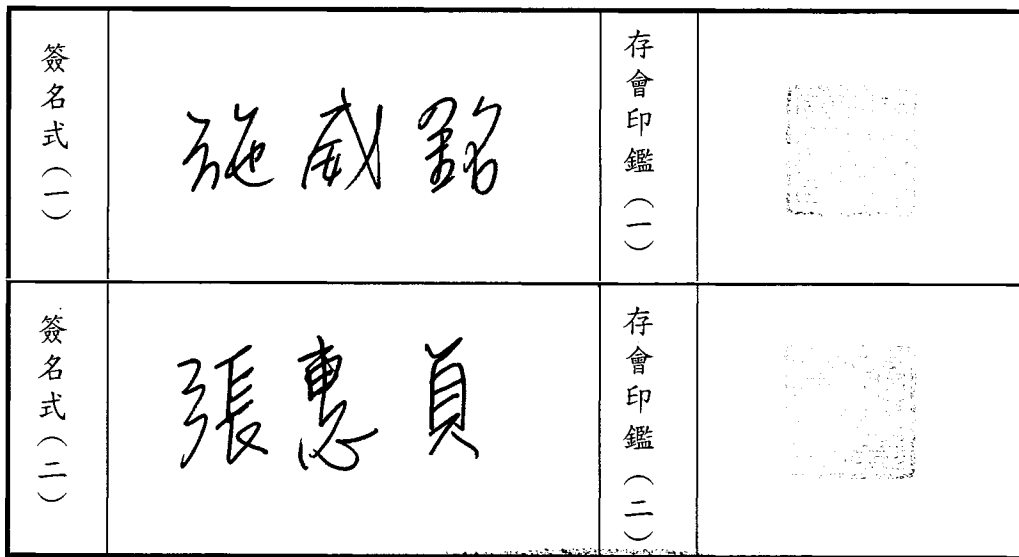 簽名式(一)
施威銘
存會印鑑(一)
簽名式(二)
張惠貞
存會印鑑(二)